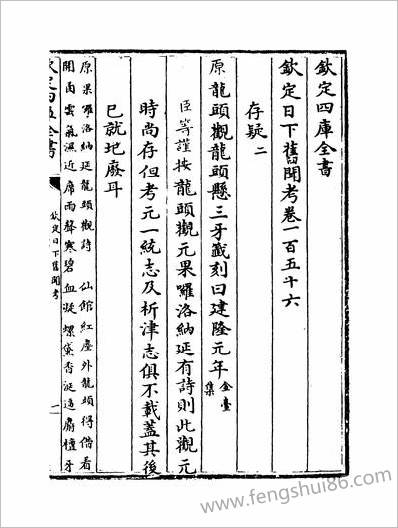 欽定四庫全書
欽定日下舊聞考卷一百五十六
存疑二
原龍頭觀龍頭懸三牙籤刻曰建隆元年金臺集
臣等謹按龍頭觀元果囉洛納延有詩則此觀元
時尚存但考元一統志及析津志俱不載蓋其後
已就圮廢耳
原果囉洛納延龍頭觀詩 仙館紅塵外龍頭得借看
開函雲氣濕近席雨聲寒碧血凝螺黛香涎透麝檀牙
欽定四庫全書
欽定日下舊聞考
一
www.fengshui86.com